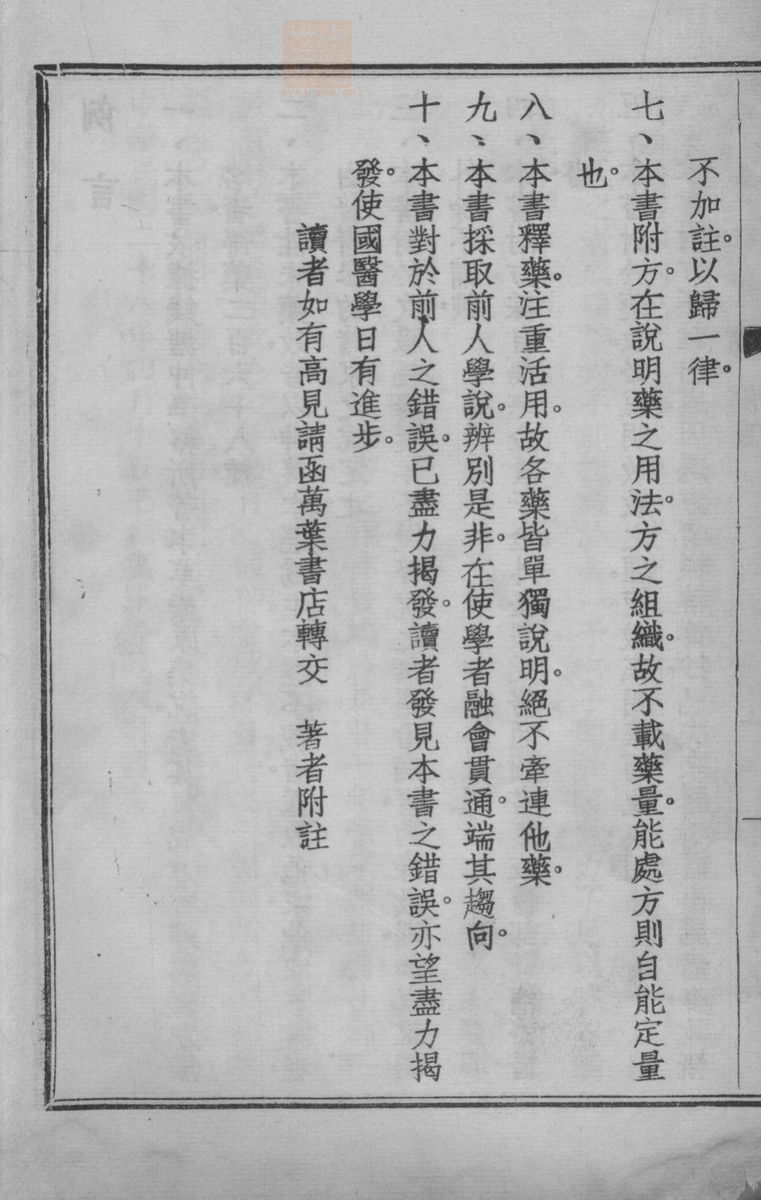 不加註。以歸一律。
七、本書附方。在說明藥之用法。方之組織。故不載藥量。能處方則自能定量
也。
八、本書釋藥。注重活用。故各藥皆單獨說明。絕不牽連他藥。
九、本書採取前人學說。辨別是非。在使學者融會貫通。端其趨向。
十、本書對於前人之錯誤。已盡力揭發。讀者發見本書之錯誤。亦望盡力揭
發。使國醫學日有進步。
讀者如有高見請函萬葉書店轉交　著者附註